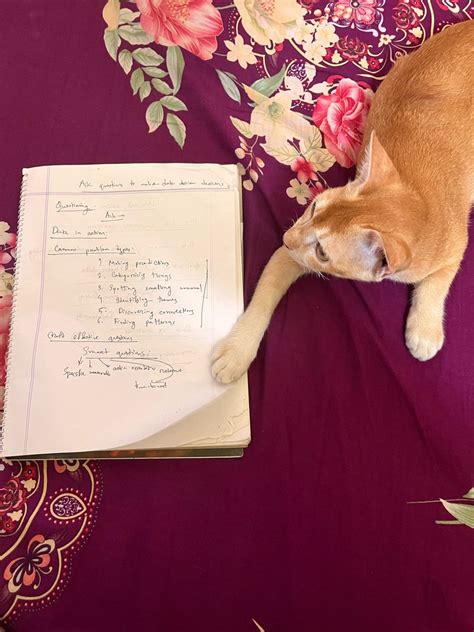 Ask questions to make data driven decisions
Questioning
Ask
Data in action:
Common problem types:
1. Making predictions
2. Categorizing things
3. Spotting something unusual
4. Identifying themes
5. Discovering connections
6. Finding patterns
Craft effective questions
Smart questions:
Specific measurable action oriented relevant
time-bound